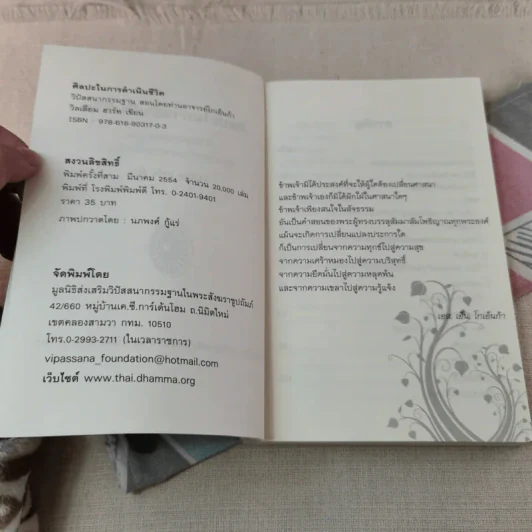 ศิลปะในการดำเนินชีวิต
วิปัสสนากรรมฐาน สอนโดยท่านอาจารย์โกเอ็นก้า
วิลเลียม ฮาร์ท เขียน
ISBN : 978-616-90317-0-3
สงวนลิขสิทธิ์
พิมพ์ครั้งที่สาม มีนาคม 2554 จำนวน 20,000 เล่ม
พิมพ์ที่ โรงพิมพ์พิมพ์ดี โทร. 0-2401-9401
ราคา 35 บาท
ภาพปกวาดโดย : นภพงศ์ กู้แร่
จัดพิมพ์โดย
มูลนิธิส่งเสริมวิปัสสนากรรมฐานในพระสังฆราชูปถัมภ์
42/660 หมู่บ้านเค.ซี.การ์เด้นโฮม ถ.นิมิตใหม่
เขตคลองสามวา กทม. 10510
โทร.0-2993-2711 (ในเวลาราชการ)
vipassana_foundation@hotmail.com
เว็บไซต์ www.thai.dhamma.org
ข้าพเจ้ามิได้ประสงค์ที่จะให้ผู้ใดต้องเปลี่ยนศาสนา
และข้าพเจ้าเองก็มิได้ฝักใฝ่ในศาสนาใดๆ
ข้าพเจ้าเพียงสนใจในสัจธรรม
อันเป็นคำสอนของพระผู้ทรงบรรลุสัมมาสัมโพธิญาณทุกพระองค์
แม้นจะเกิดการเปลี่ยนแปลงประการใด
ก็เป็นการเปลี่ยนจากความทุกข์ไปสู่ความสุข
จากความเศร้าหมองไปสู่ความบริสุทธิ์
จากความยึดมั่นไปสู่ความหลุดพ้น
และจากความเขลาไปสู่ความรู้แจ้ง
เอส เอ็น โกเอ็นก้า